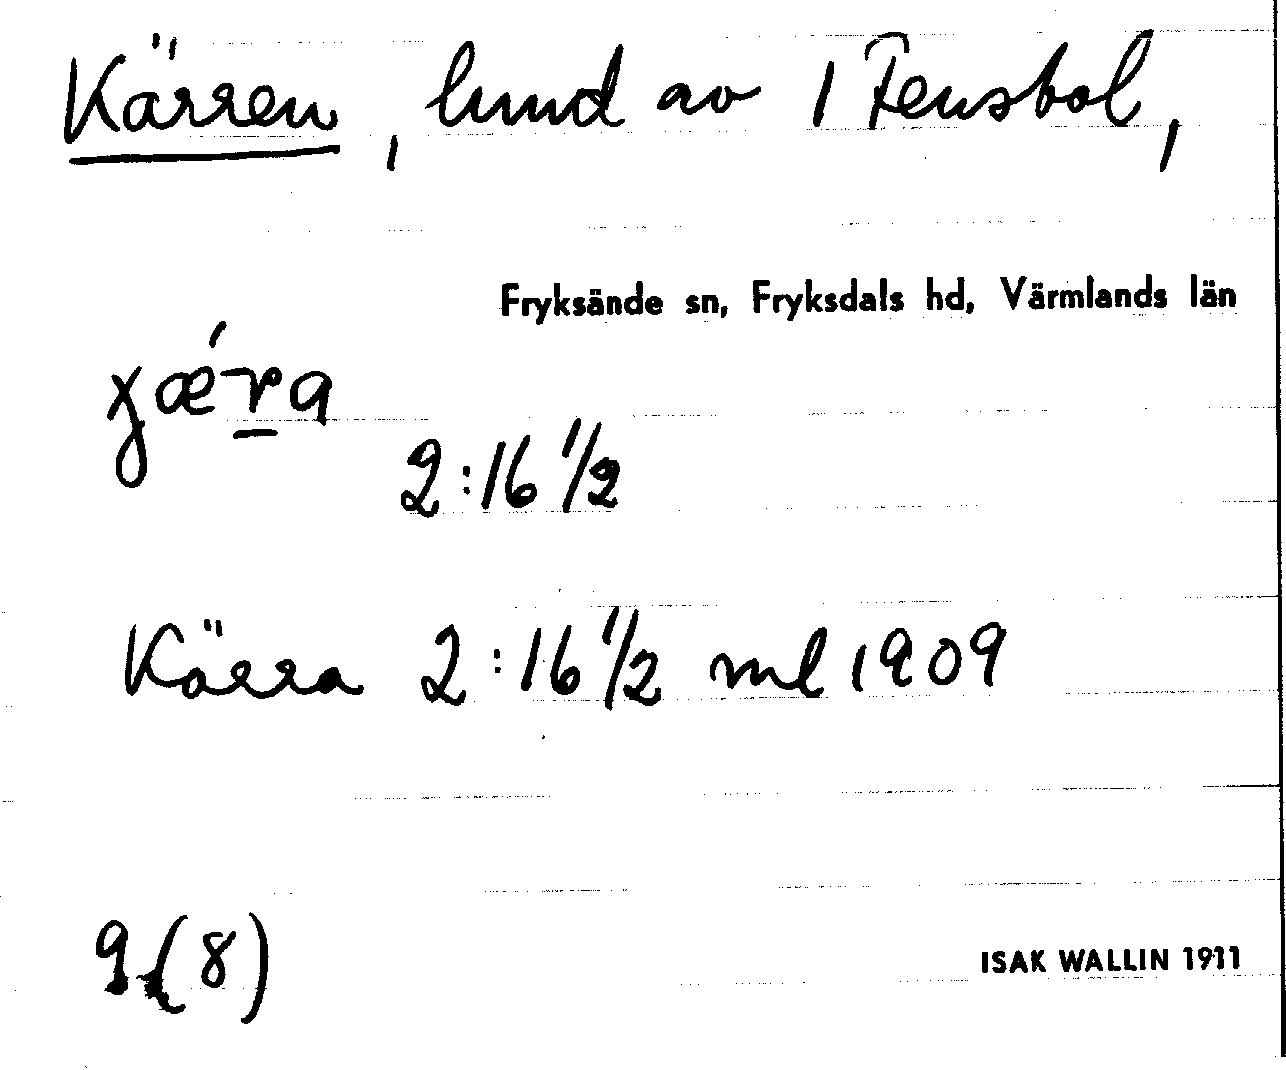 Kärren, lund av 1 Fensbol,
Fryksände sn, Fryksdals hd, Värmlands län
χǽr̲a
2:16 1/2
Kärra 2:16 1/2 ml 1909
9 (8)
ISAK WALLIN 1911